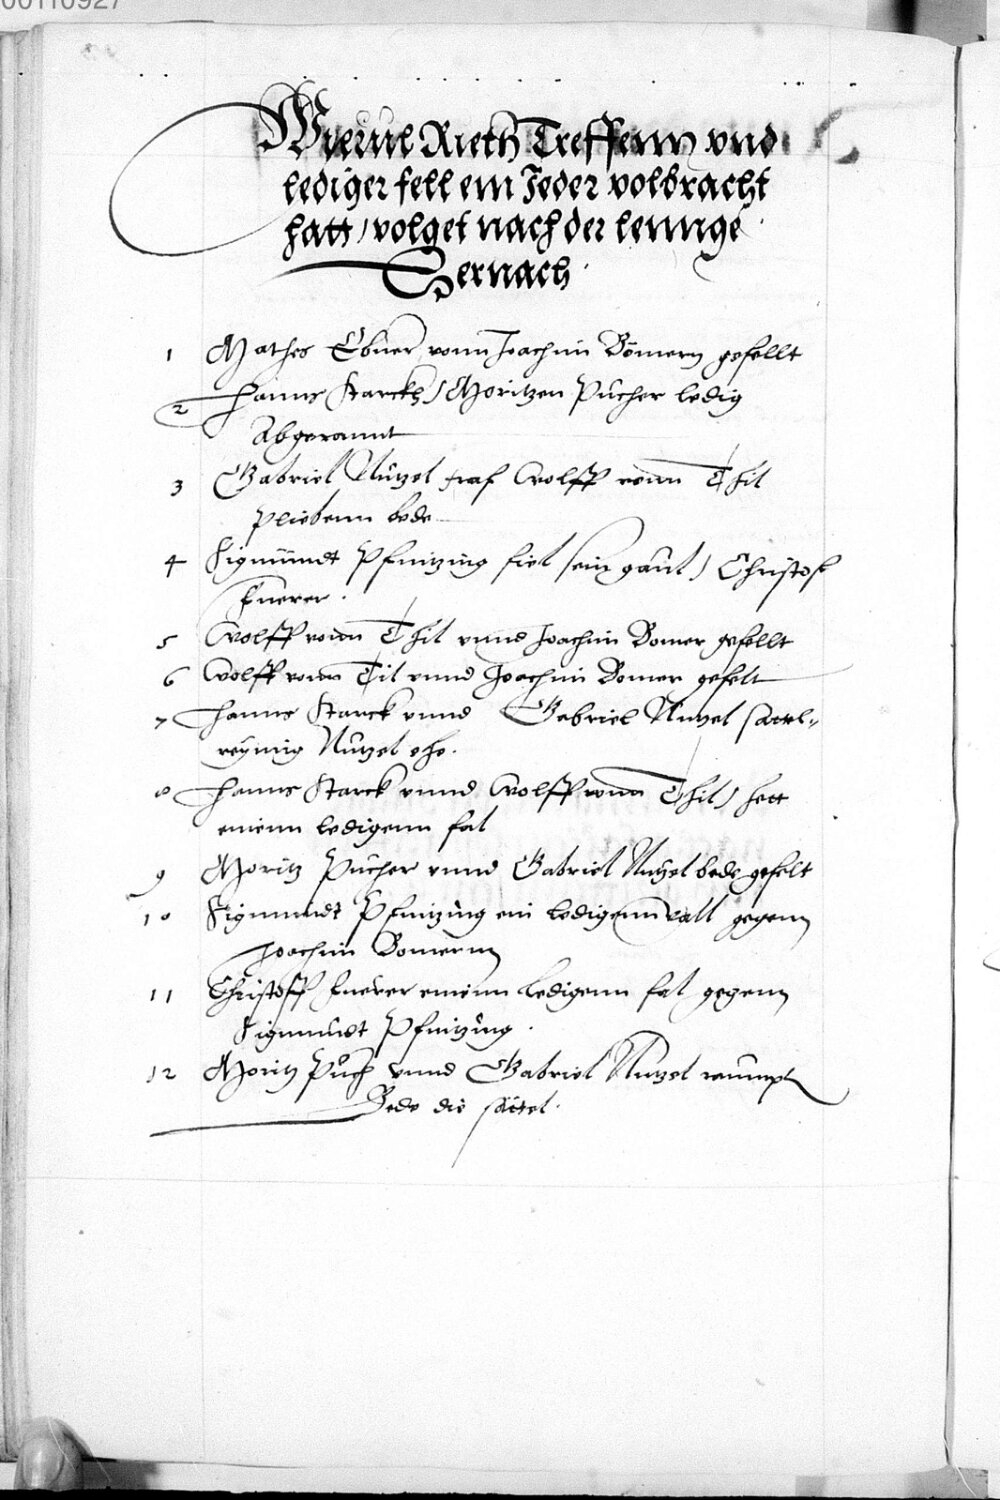 00110927
Wieuil Rieth Treffenn vnd
lediger fell ein Jeder volbracht
hatt, volget nach der lennge
Hernach
1 Mathes Ebner vonn Joachim Bömern gefellt
2 Hanns Starckh, Moritzen Pücher ledig
Abgerannt
3 Gabriel Nützel traf Wolff vonn Thil
Pliebenn bede
4 Sigmündt Pfintzing fiel sein gaul, Christof
Fuerer
5 Wolff vonn Thil vnnd Joachim Bomer gefellt
6 Wolff vonn Til vnnd Joachim Bomer gefelt
7 Hanns Starck vnnd Gabriel Nützel sattel
Nützel ehe
8 Hanns Starck vnnd Wolff vonn Thil, hett
einenn ledigenn fal
9 Moritz Pücher vnnd Gabriel Nützel bede gefelt
10 Sigmundt Pfintzing ein ledigenn vall gegenn
Joachim Bomernn
11 Christoff Fuerer einenn ledigenn fal gegenn
Sigmundt Pfintzing
12 Moritz Püch vnnd Gabriel Nützel raumpt
Bede die sättel